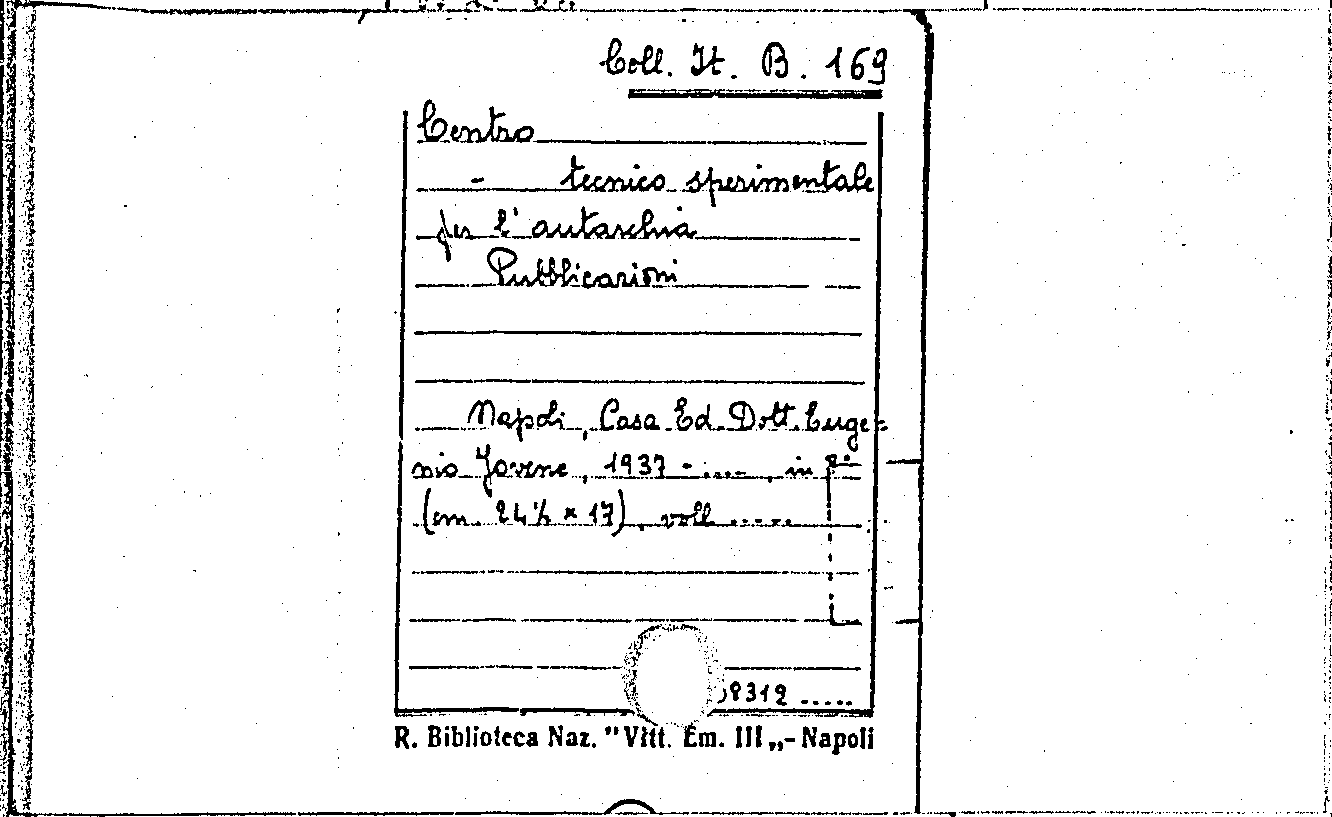 Coll. It. B. 169
Centro
- tecnico sperimentale
per l'autarchia
Pubblicazioni
Napoli, Casa Ed. Dott. Euge=
nio Jovene, 1937 - ...., in 8°
(cm. 24½ × 17), voll. .....
8312 .....
R. Biblioteca Naz. "Vitt. Em. III„- Napoli